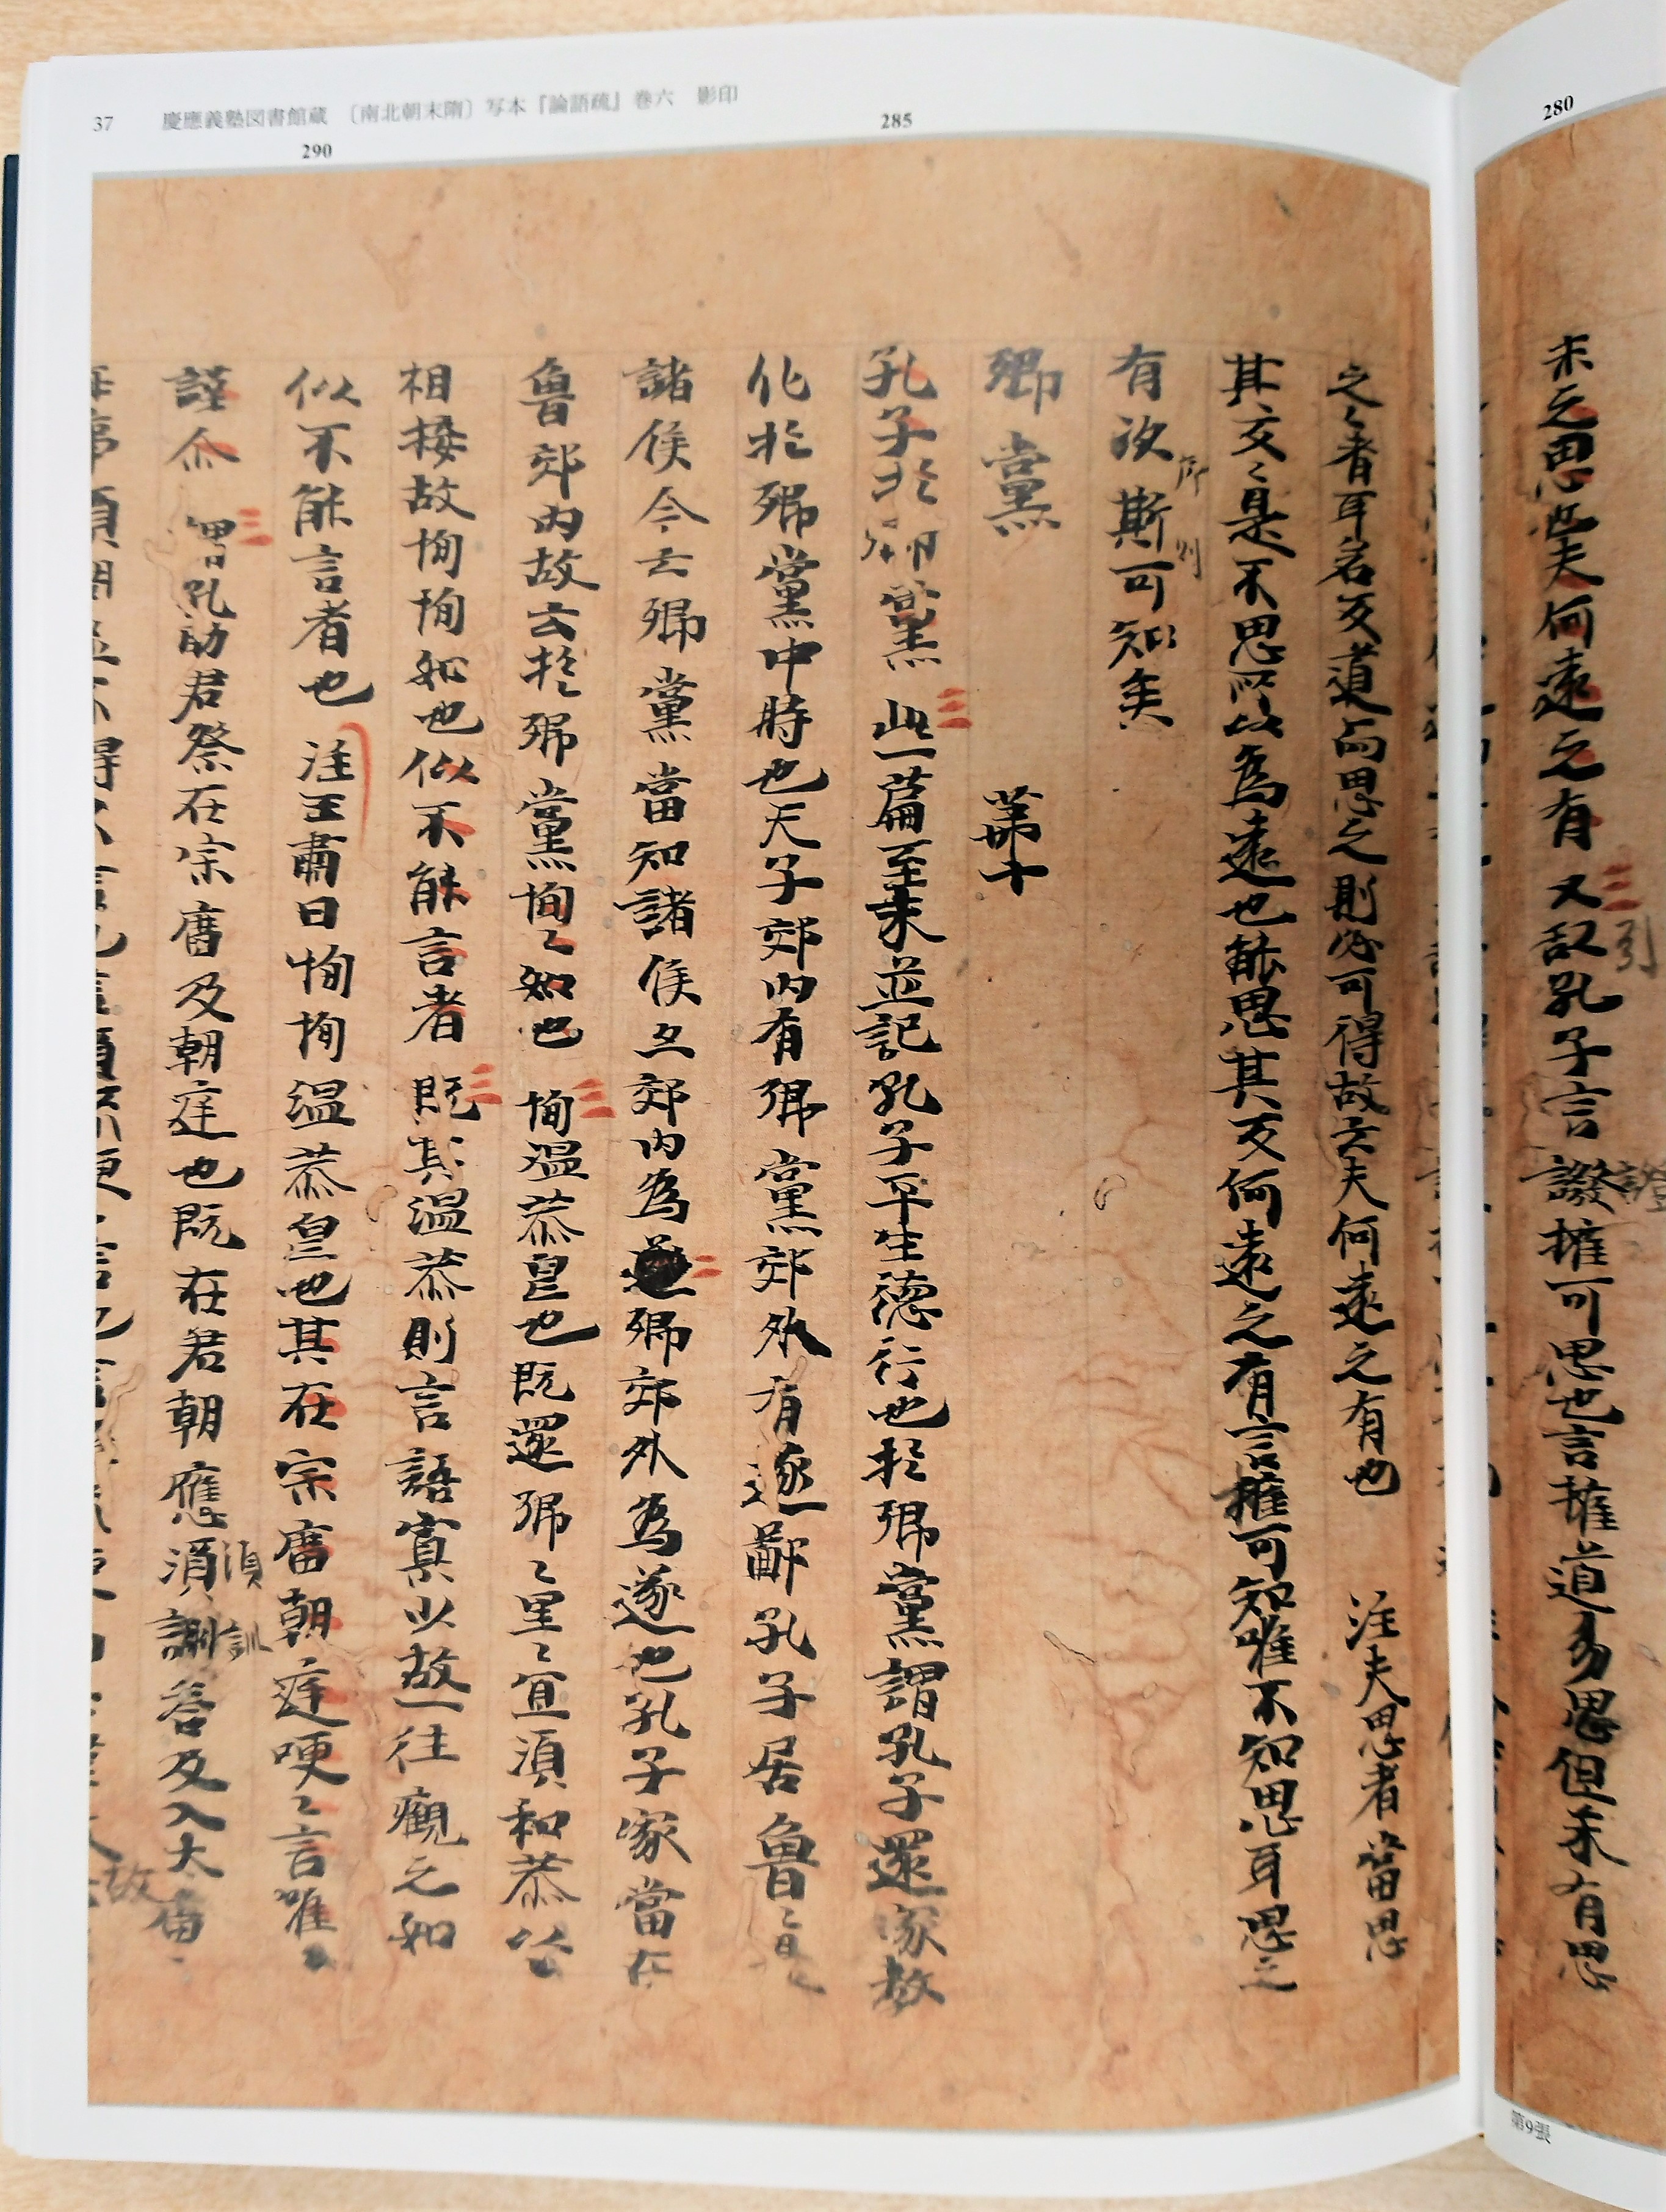 37　慶應義塾図書館蔵　〔南北朝末隋〕写本『論語疏』巻六　影印
280
285
290
未之思也夫何遠之有　又引孔子言證權可思也言權道易思但未有思
引
證
之〻者耳若反道而思之則必可得故云夫何遠之有也　注夫思者當思
其反〻是不思所以為遠也能思其反何遠之有言權可知唯不知思耳思之
有次斯可知矣
所
則
鄉黨　　　　第十
孔子於鄉黨　此一篇至末並記孔子平生德行也於鄉黨謂孔子還家教
化於鄉黨中時也天子郊內有鄉黨郊外有遂鄙孔子居魯〻是
諸侯今云鄉黨當知諸侯亦郊內為鄉郊外為遂也孔子家當在
魯郊內故云於鄉黨恂〻如也　恂溫恭皃也既還鄉〻里〻宜須和恭以
相接故恂恂如也似不能言者　既其溫恭則言語寡少故一往觀之如
似不能言者也　注王肅曰恂恂溫恭皃也其在宗廟朝廷便〻言唯
謹尒　謂孔助君祭在宗廟及朝廷也既在君朝應須訓答及入太廟
須
訓
故
第9張